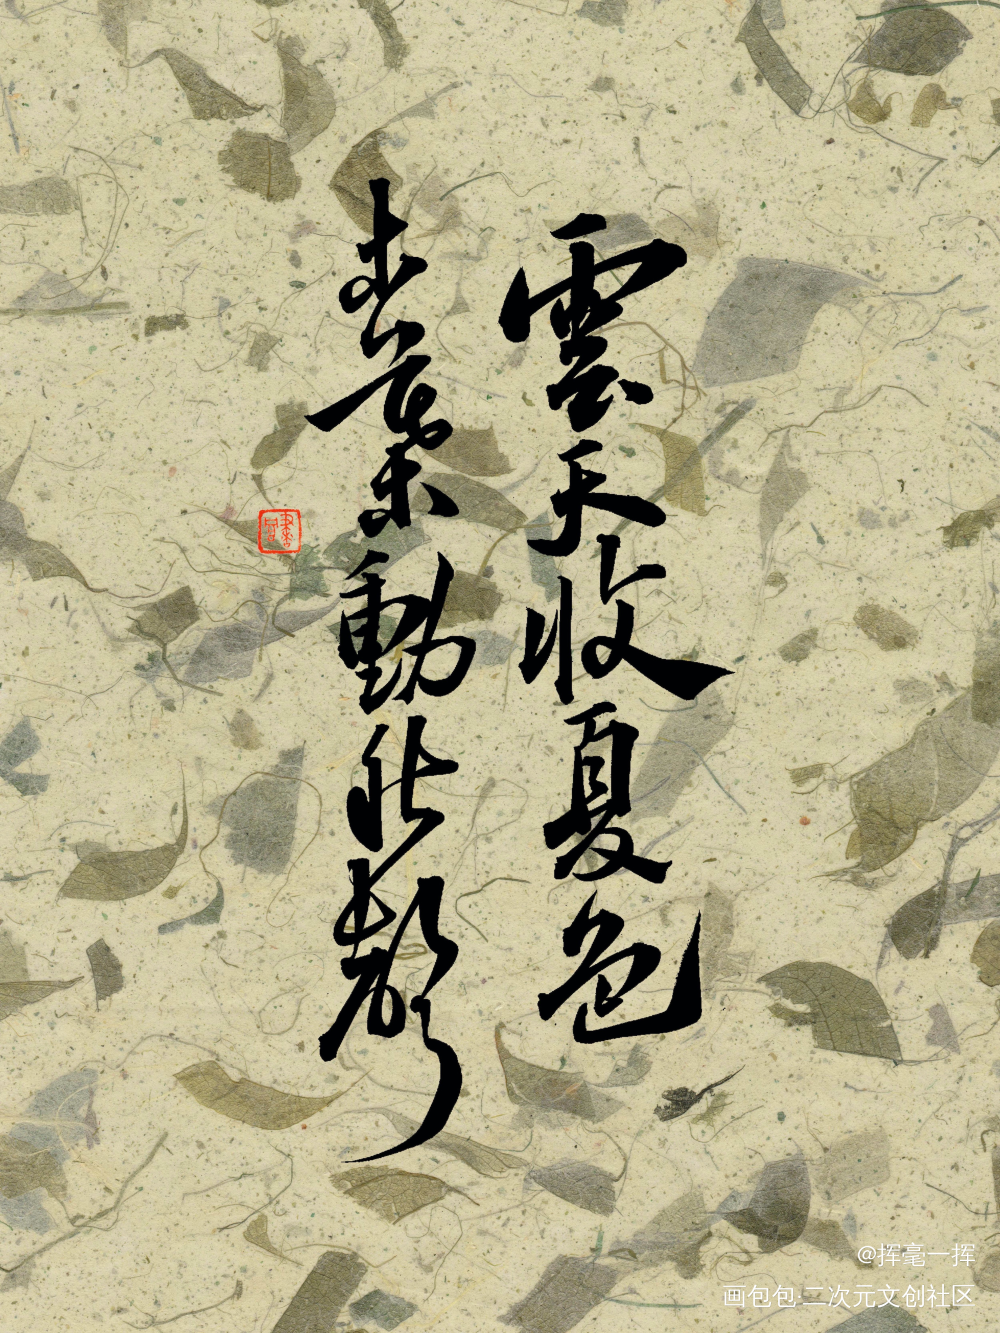 雲天收夏色
木葉動秋聲
@挥毫一挥
画包包·二次元文创社区